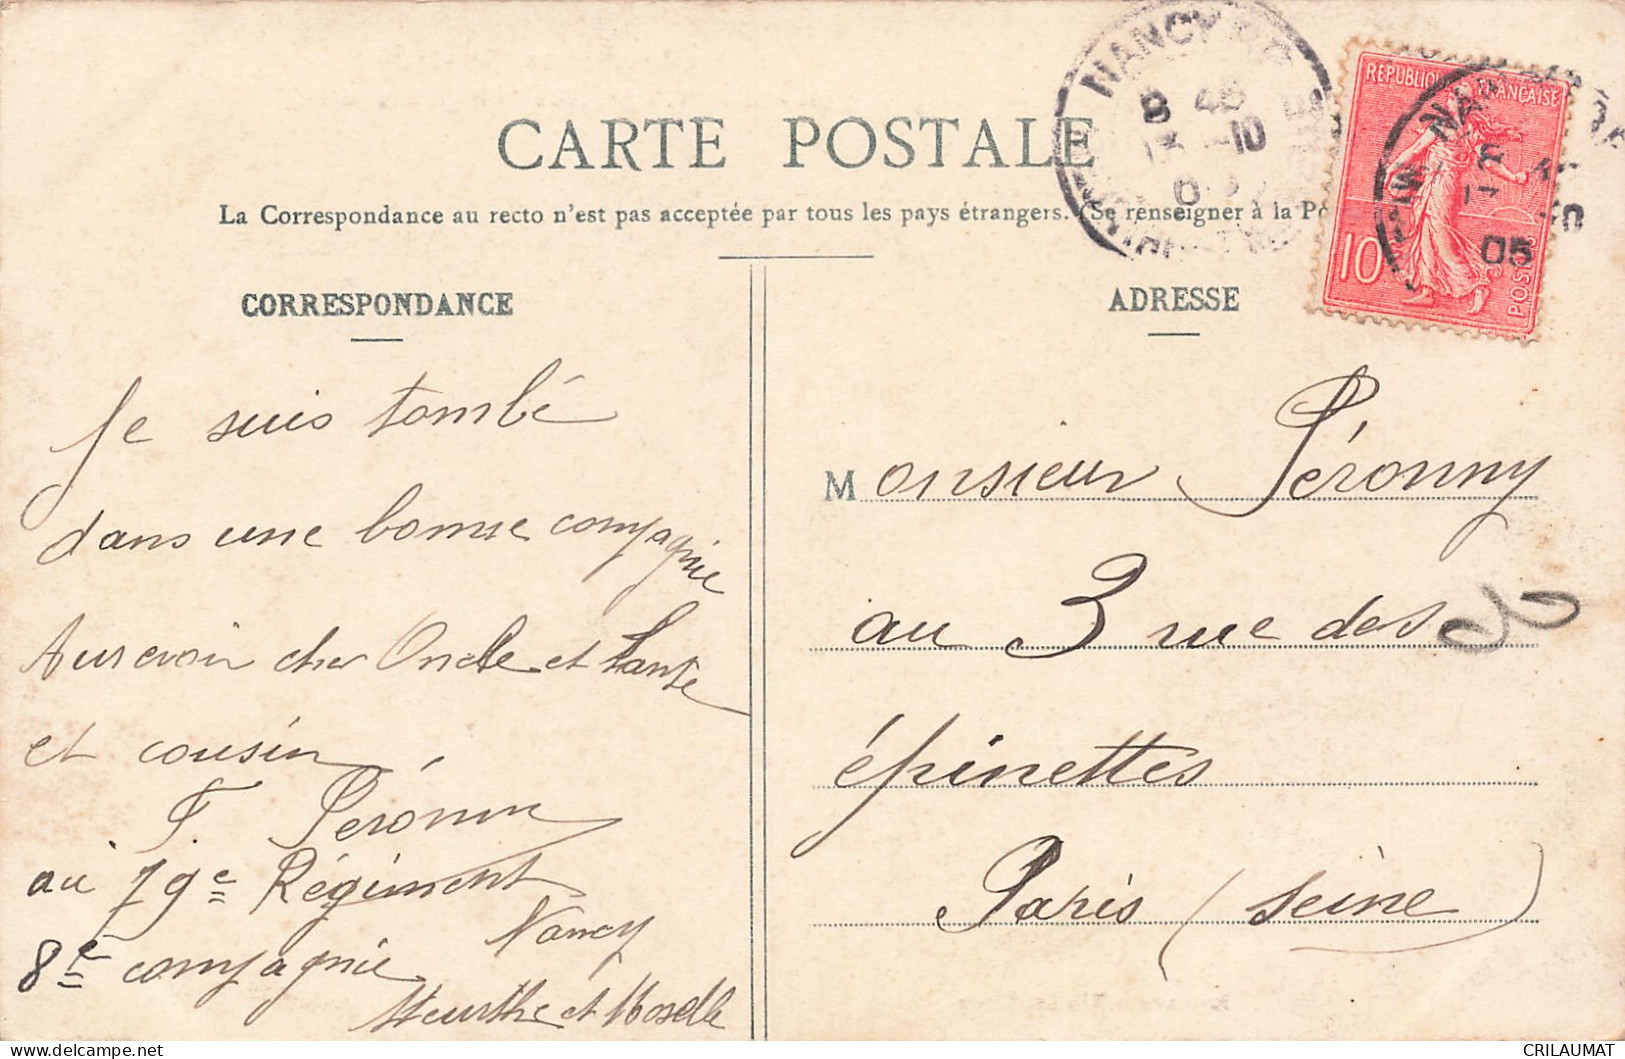 CARTE POSTALE
La Correspondance au recto n'est pas acceptée par tous les pays étrangers. (Se renseigner à la
CORRESPONDANCE
Je suis tombé
dans une bonne compagnie
Aurevoir cher Oncle et tante
et cousin
F. Péronny
au 79e Régiment
Nancy
8e compagnie
Meurthe et Moselle
ADRESSE
Monsieur Péronny
au 3 rue des
épinettes
Paris (seine)
NANCY
8 45
10
REPUBLIQUE FRANÇAISE
10
POSTES
NAN
05
delcampe.net
CRILAUMAT